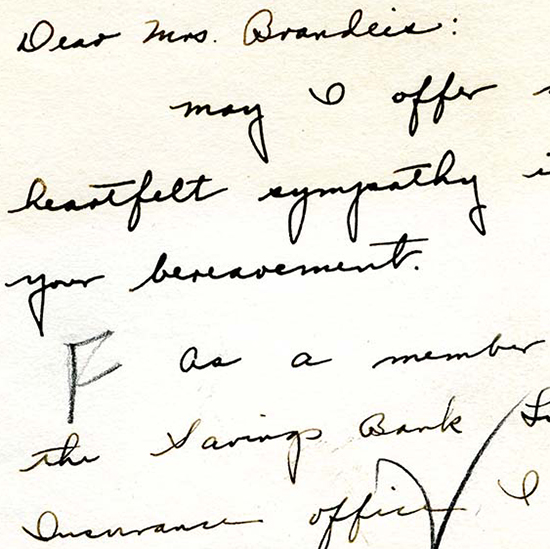 Dear Mrs. Brandeis:
may I offer
heartfelt sympathy i
your bereavement.
F as a member
the Savings Bank
Insurance office I